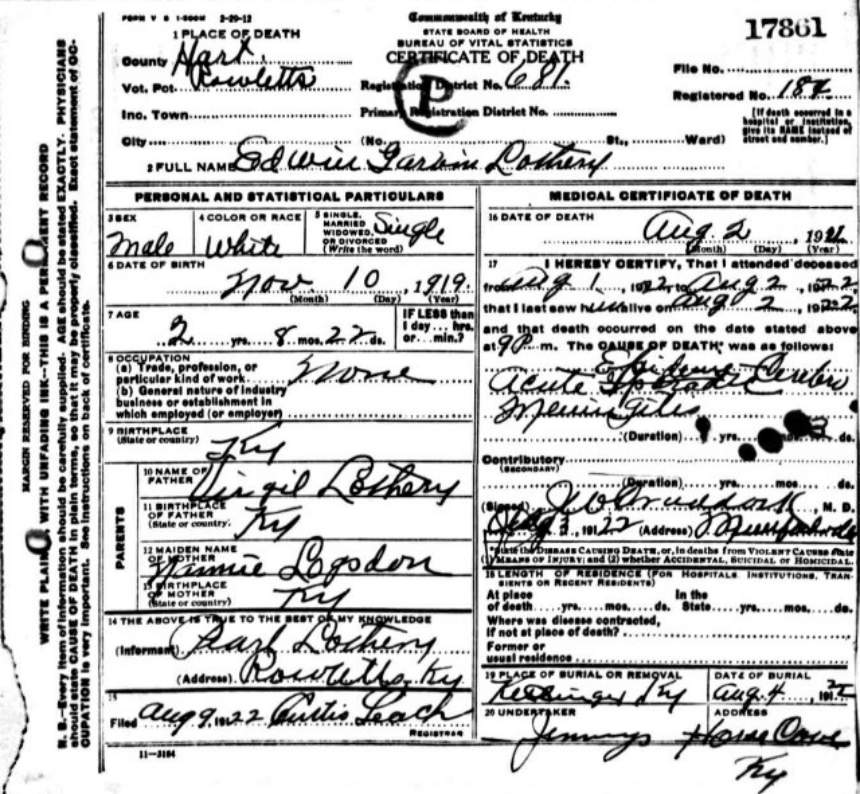 FORM V S 1-500M 2-29-12
Commonwealth of Kentucky
STATE BOARD OF HEALTH
BUREAU OF VITAL STATISTICS
CERTIFICATE OF DEATH
17861
1 PLACE OF DEATH
County Hart
Vot. Pct. Rowletts
Inc. Town
City
Registration District No. 681.
P
Primary Registration District No.
(No. St., Ward)
File No.
Registered No. 184
[If death occurred in a
hospital or institution,
give its NAME instead of
street and number.]
2 FULL NAME Edwin Garvin Lothery
PERSONAL AND STATISTICAL PARTICULARS
3 SEX
Male
4 COLOR OR RACE
White
5 SINGLE,
MARRIED
WIDOWED,
OR DIVORCED
(Write the word)
Single
6 DATE OF BIRTH
Nov. 10, 1919.
(Month) (Day) (Year)
7 AGE
2 yrs. 8 mos. 22 ds.
IF LESS than
1 day ... hrs.
or ... min.?
8 OCCUPATION
(a) Trade, profession, or
particular kind of work None
(b) General nature of industry
business or establishment in
which employed (or employer)
9 BIRTHPLACE
(State or country)
Ky
PARENTS
10 NAME OF
FATHER
Virgil Lothery
11 BIRTHPLACE
OF FATHER
(State or country.
Ky
12 MAIDEN NAME
OF MOTHER
Nannie Logsdon
13 BIRTHPLACE
OF MOTHER
(State or country.
Ky
14 THE ABOVE IS TRUE TO THE BEST OF MY KNOWLEDGE
(Informant) Pearl Lothery
(Address) Rowletts, Ky
15
Filed Aug 9, 1922 Curtis Leach
REGISTRAR
11-3184
MEDICAL CERTIFICATE OF DEATH
16 DATE OF DEATH
Aug. 2, 192
(Month) (Day) (Year)
17 I HEREBY CERTIFY, That I attended deceased
from Aug 1, 1922, to Aug 2, 1922
that I last saw him alive on Aug 2, 1922
and that death occurred on the date stated above
at 9P m. The CAUSE OF DEATH* was as follows:
Epidemic Cerebro
Acute
Meningitis
(Duration) yrs. mos. ds.
Contributory
(SECONDARY)
(Duration) yrs. mos. ds.
(Signed) , M. D.
Aug 3, 1922 (Address) Munfordville
*State the DISEASE CAUSING DEATH, or, in deaths from VIOLENT CAUSES state
(1) MEANS OF INJURY; and (2) whether ACCIDENTAL, SUICIDAL or HOMICIDAL.
18 LENGTH OF RESIDENCE (FOR HOSPITALS, INSTITUTIONS, TRAN-
SIENTS OR RECENT RESIDENTS)
At place In the
of death yrs. mos. ds. State yrs. mos. ds.
Where was disease contracted,
if not at place of death?
Former or
usual residence
19 PLACE OF BURIAL OR REMOVAL
Ky
DATE OF BURIAL
Aug. 4, 1922
20 UNDERTAKER
Jennings
ADDRESS
Horse Cave
Ky
MARGIN RESERVED FOR BINDING
WRITE PLAINLY WITH UNFADING INK--THIS IS A PERMANENT RECORD
N. B.--Every item of information should be carefully supplied. AGE should be stated EXACTLY. PHYSICIANS
should state CAUSE OF DEATH in plain terms, so that it may be properly classified. Exact statement of OC-
CUPATION is very important. See instructions on back of certificate.